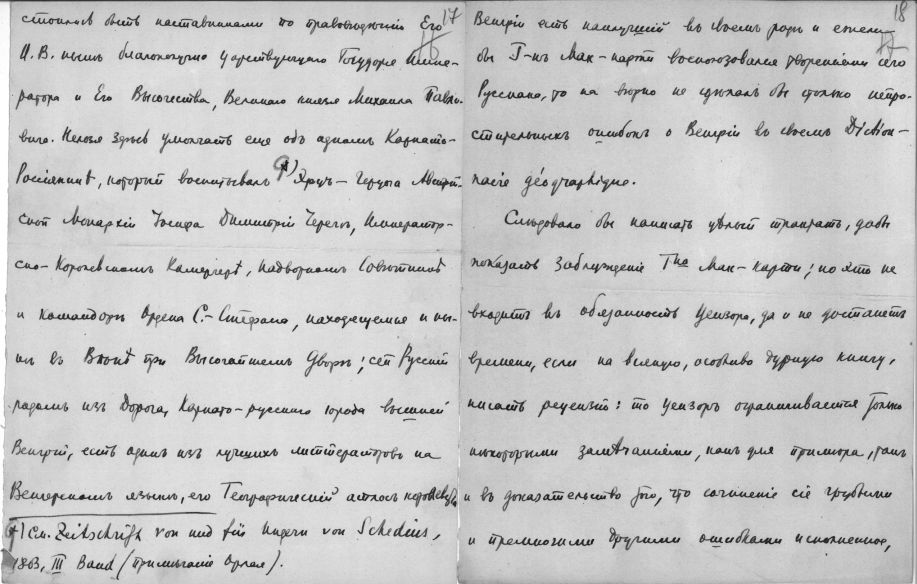 17
стоились быть наставниками по правоведѣнію Его
И. В. нынѣ благополучно царствующаго Государя Импе-
ратора и Его Высочества, Великаго князя Михаила Павло-
вича. Нельзя здѣсь умолчать еще объ одномъ Карпато-
Россіянинѣ, который воспитывалъ *) Эрцъ-Герцога Австрій-
ской Монархіи Іосифа Димитріи Герегъ, Император-
ско-Королевскомъ Камергерѣ, Надворномъ Совѣтникѣ
и командорѣ Ордена С.-Стефана, находящемся и ны-
нѣ въ Вѣнѣ при Высочайшемъ Дворѣ; сей Русскій
родомъ изъ Дорога, Карпато-русскаго города высшей
Венгріи, есть одинъ изъ лучшихъ литтераторовъ на
Венгерскомъ языкѣ, его Географическій атласъ королевства
*) См. Zeitschrift von und für Ungern von Schedius,
1803, III Band (Примѣчаніе Орлая).
18
Венгріи есть наилучшій въ своемъ родѣ и ежели
бы Г-нъ Мак-карти воспользовался твореніями сего
Руссиана, то на вѣрно не сдѣлалъ бы столько непро-
стительныхъ ошибокъ о Венгріи въ своемъ Diction-
naire géographique.
Слѣдовало бы написать цѣлый трактатъ, дабы
показать заблужденіе Гна Мак-карти; но это не
входитъ въ обязанность Цензора, да и не достанетъ
времени, если на всякую, особливо дурную книгу,
писать рецензію: то Цензоръ ограничивается только
нѣкоторыми замѣчаніями, какъ для примѣра, такъ
и въ доказательство того, что сочиненіе сіе грубыми
и премногими другими ошибками исполненное,